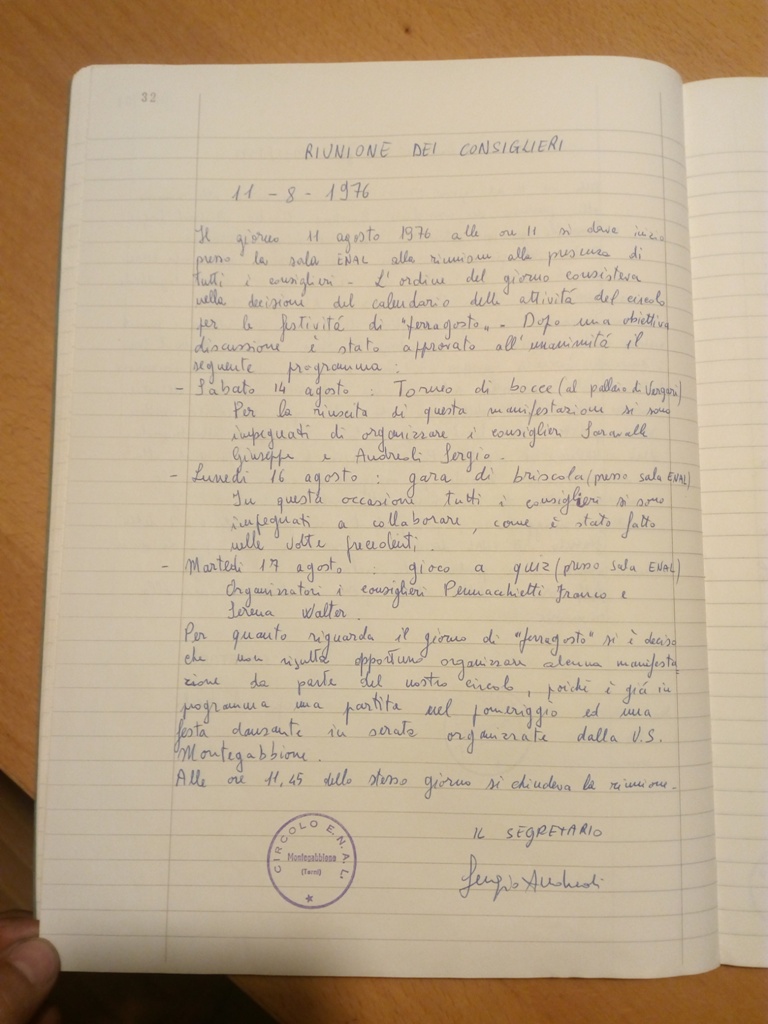 32
RIUNIONE DEI CONSIGLIERI
11 - 8 - 1976
Il giorno 11 agosto 1976 alle ore 11 si dava inizio
presso la sala ENAL alla riunione alla presenza di
tutti i consiglieri - L'ordine del giorno consisteva
nella decisione del calendario delle attività del circolo
per le festività di "ferragosto" - Dopo una obiettiva
discussione è stato approvato all'unanimità il
seguente programma :
- Sabato 14 agosto : Torneo di bocce (al pallaio di Vergari)
Per la riuscita di questa manifestazione si sono
impegnati di organizzare i consiglieri
Giuseppe e Andreoli Sergio.
- Lunedì 16 agosto : gara di briscola (presso sala ENAL)
In questa occasione tutti i consiglieri si sono
impegnati a collaborare, come è stato fatto
nelle volte precedenti.
- Martedì 17 agosto : gioco a quiz (presso sala ENAL)
Organizzatori i consiglieri Pennacchietti Franco e
Serena Walter.
Per quanto riguarda il giorno di "ferragosto" si è deciso
che non risulta opportuno organizzare alcuna manifesta
zione da parte del nostro circolo, poichè è già in
programma una partita nel pomeriggio ed una
festa danzante in serata organizzate dalla U.S.
Montegabbione.
Alle ore 11,45 dello stesso giorno si chiudeva la riunione.
IL SEGRETARIO
Sergio Andreoli
CIRCOLO E.N.A.L.
Montegabbione
(Terni)